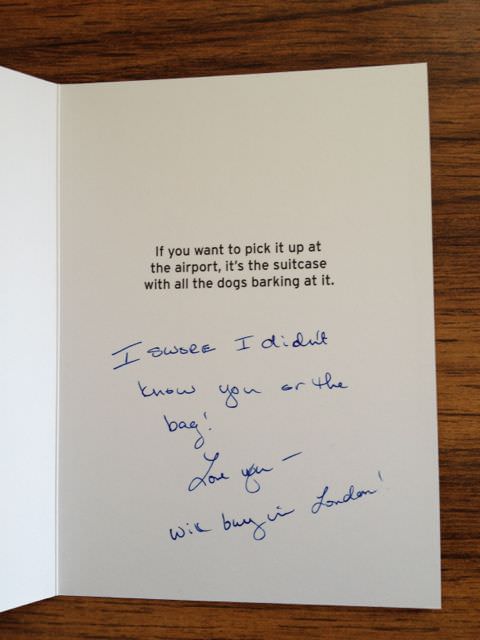 If you want to pick it up at
the airport, it's the suitcase
with all the dogs barking at it.
I swore I didn't
know you or the
bag!
Love you —
Will buy in London!